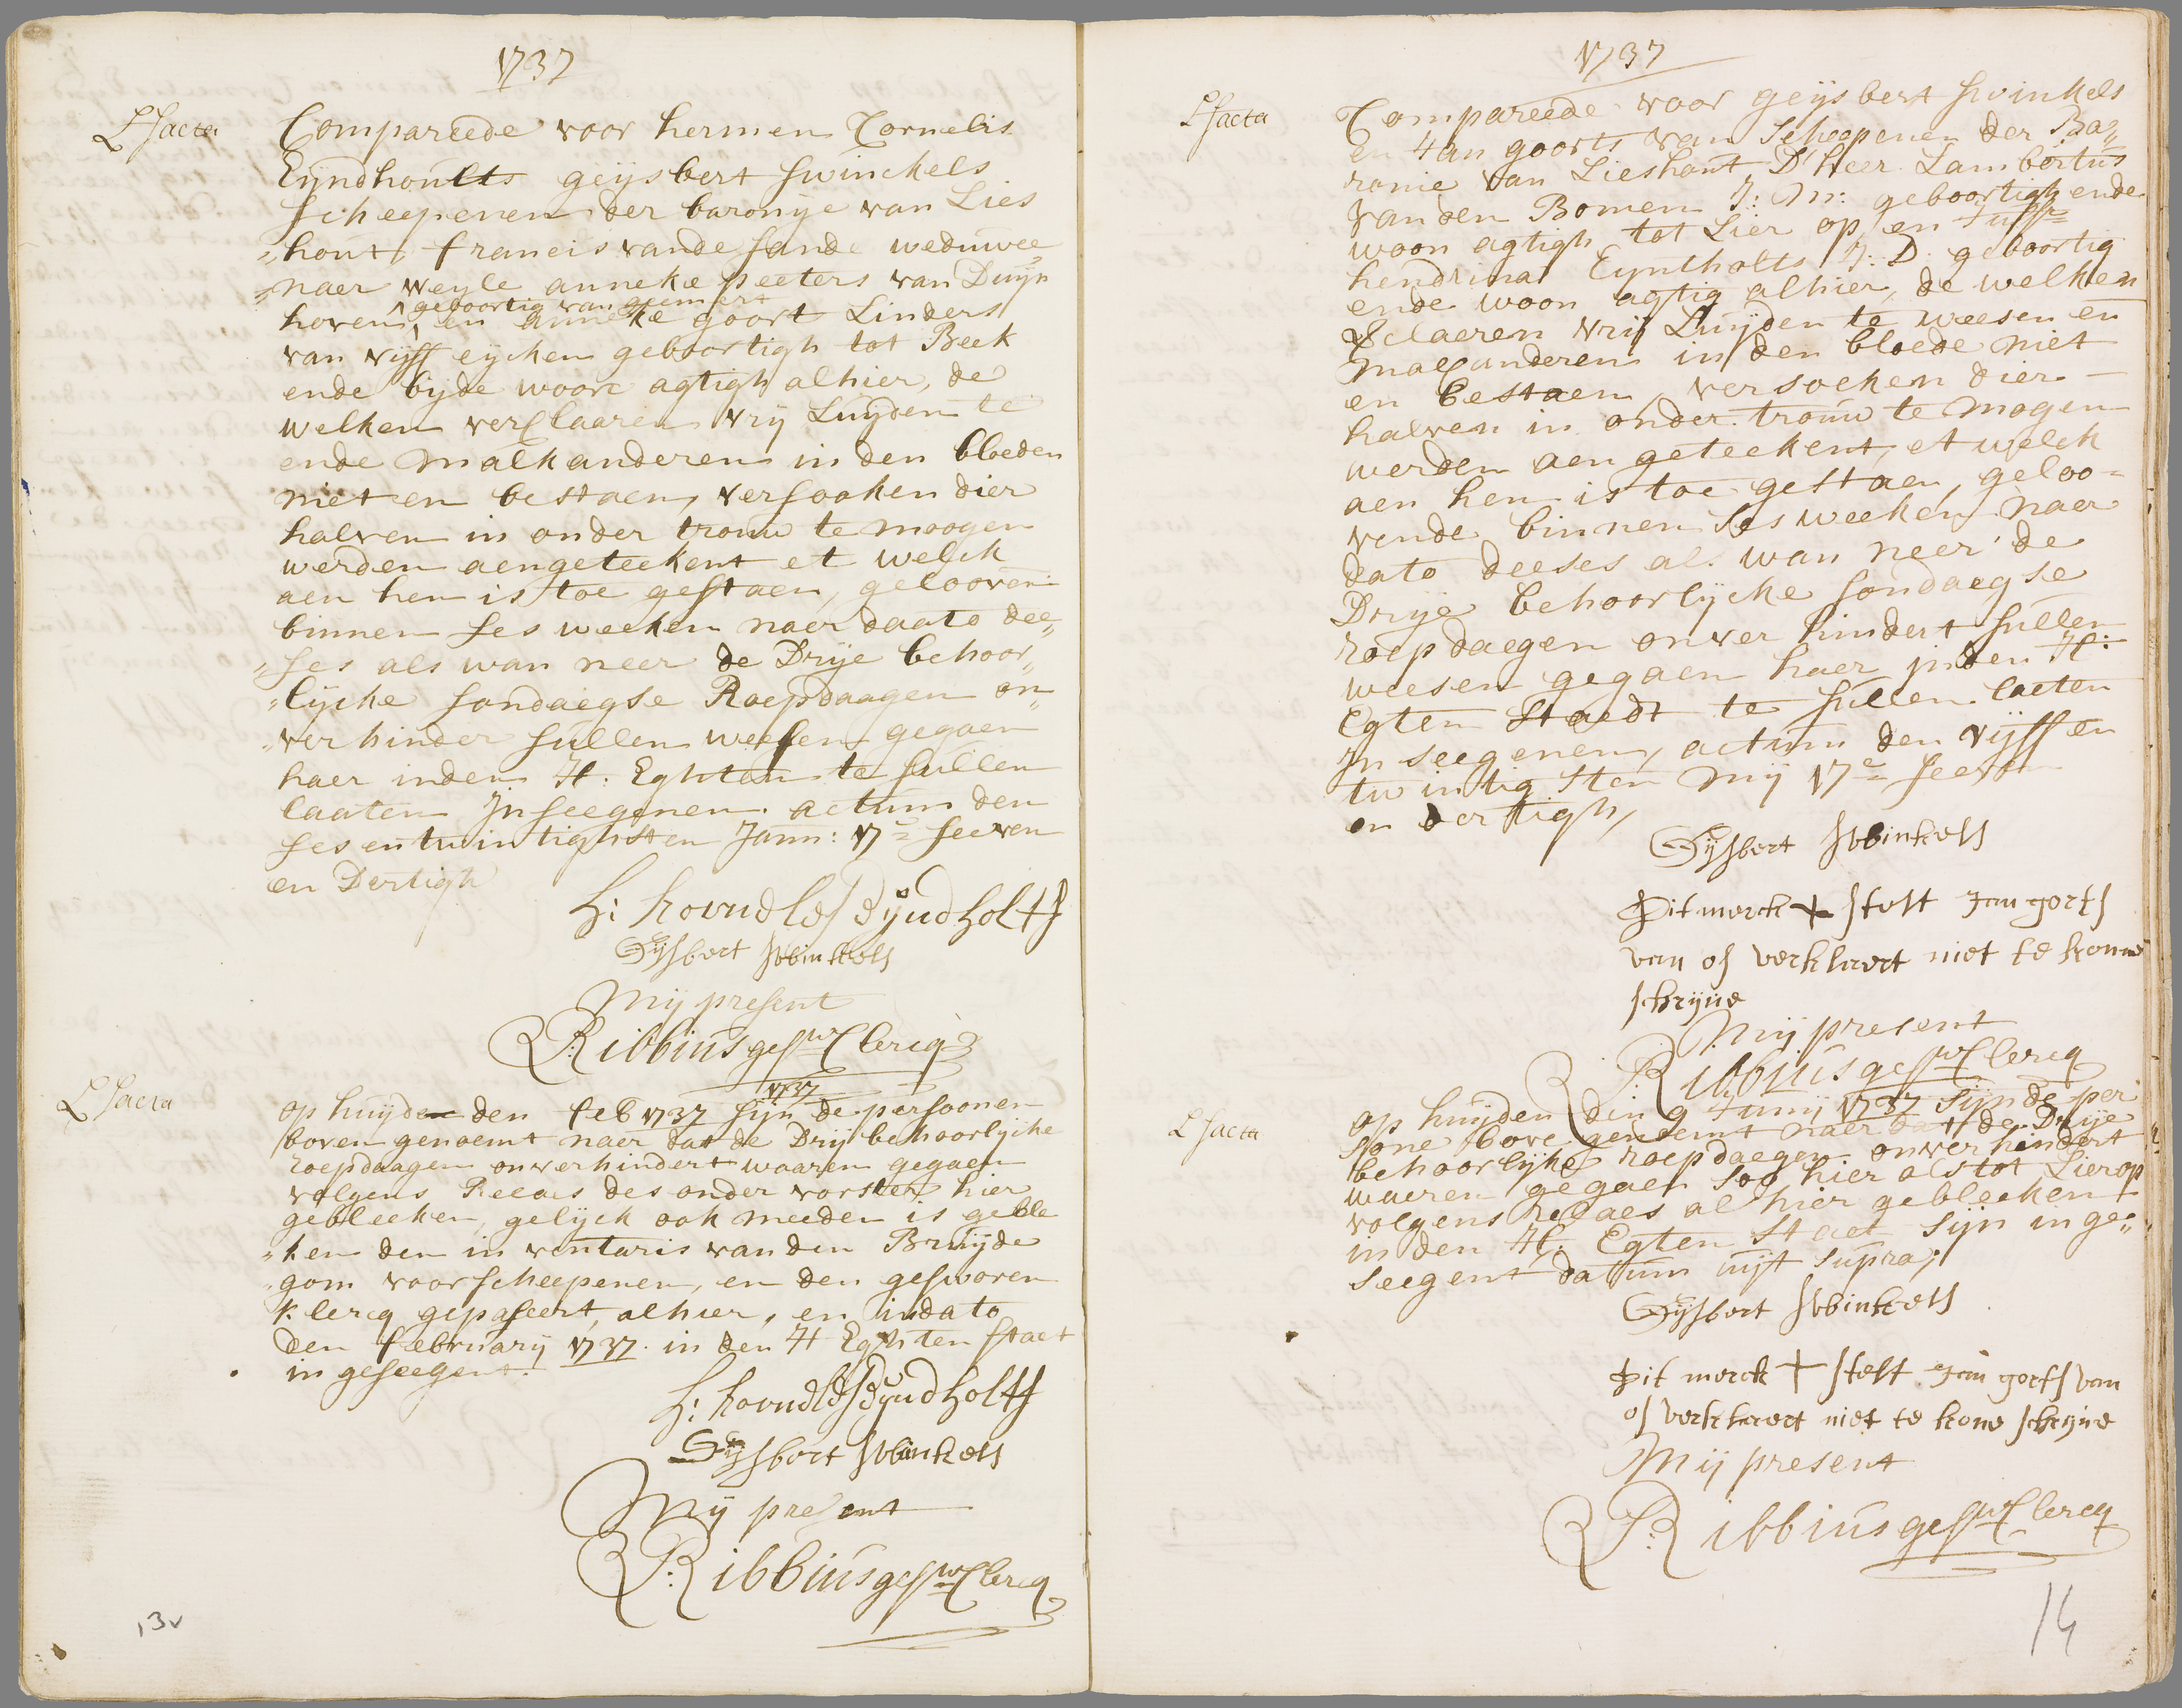 1737
Lfacta
Compareede voor hermen Cornelis
Eyndhoults geijsbert swinckels
scheepenen der baronye van Lies
"hout, francis vande sande weduwee
"naer weyle anneke peeters van Duyn
geboortig van gemert
hoven, en anneke goort Linders
van vijff eycken geboortigh tot Beek
ende byde woon agtigh alhier, de
welken verclaaren vry Luyden te
ende malkanderen in den bloeden
niet en bestaen, versooken dier
halven in onder trouw te moogen
werden aengeteekent et welck
aen hen is toe gestaen, gelooven
binnen ses weeken naer daato dee„
"ses als wan neer de Drije behoor„
"lycke sondaegse Roepdaagen on„
"verhinder sullen weesen gegaen
haer inden H: Eghten te sullen
laaten Jnseegenen. actum den
ses en twintighsten Jann: 17c seeven
en Dertigh
H: Cornelis Eyndholts
Gijsbert Swinkels
Mij present
R: Ribbius gesw Clercq
1737
Lfacta
op huyden den feb 1737 sijn de persoonen
boven genoemt naer dat de Drij behoorlycke
roepdaagen onverhindert waaren gegaen
volgens Relaas des onder vorster hier
gebleeken, gelyck ook meeden is geble
"ken den in ventaris van den Bruyde
"gom voor scheepenen, en den geswoeren
klercq gepaseert, alhier, en in dato
den february 1737. in den H Eghten staet
in geseegent.
H: Cornelis Eyndholts
Gijsbert Swinkels
Mij present
R: Ribbius gesw Clercq
13v
1737
Lfacta
Compareede voor geijsbert swinkels
en Jan goorts van scheepenen der Baa„
ronie van Lieshout, D'heer Lambertus
van den Bomen J: M: geboortigh ende
woon agtigh tot Lier op, en Juffr
hendrina Eyntholts J: D. geboortig
ende woon agtig alhier, de welken
verclaeren vrij Luyden te weesen en
malkanderen in den bloede niet
en bestaen, versoeken dier
halven in onder trouw te mogen
werden aen geteekent, et welck
aen hen is toe gestaen, geloo=
vende binnen ses weeken naer
dato deeses als wan neer de
Drije behoorlycke sondaegse
roepdaegen onver hindert sullen
weesen gegaen haer inden H:
Egten staedt te sullen laeten
Jn seegenen, actum den vijff en
twintigsten mij 17c seeven
en dertigh,
Gijsbert Swinkels
Dit merck + stelt Jan gorts
van os verklaert niet te konne
schryve
Mij present
R: Ribbius gesw Clercq
Lfacta
op huyden den 9 Junij 1737 sijn de per
sone bove genoemt naer dat de Drije
behoorlyke roepdaegen onverhindert
waeren gegaen soo hier als tot Lierop
volgens relaes al hier gebleeken
in den H: Egten staet sijn in ge„
seegent datum uyt supra;
Gijsbert Swinkels
Dit merck + stelt Jan gorts van
os verklaert niet te kone schryve
Mij present
R: Ribbius gesw Clercq
14